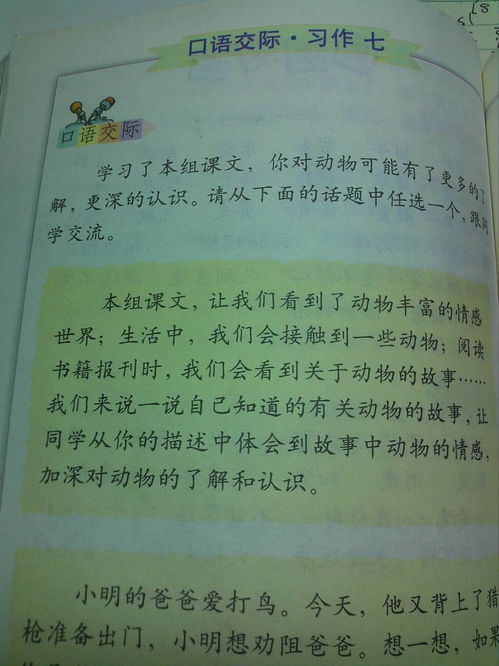 口语交际·习作 七
口语交际
学习了本组课文，你对动物可能有了更多的了
解，更深的认识。请从下面的话题中任选一个，跟同
学交流。
本组课文，让我们看到了动物丰富的情感
世界；生活中，我们会接触到一些动物；阅读
书籍报刊时，我们会看到关于动物的故事……
我们来说一说自己知道的有关动物的故事，让
同学从你的描述中体会到故事中动物的情感，
加深对动物的了解和认识。
小明的爸爸爱打鸟。今天，他又背上了猎
枪准备出门，小明想劝阻爸爸。想一想，如果